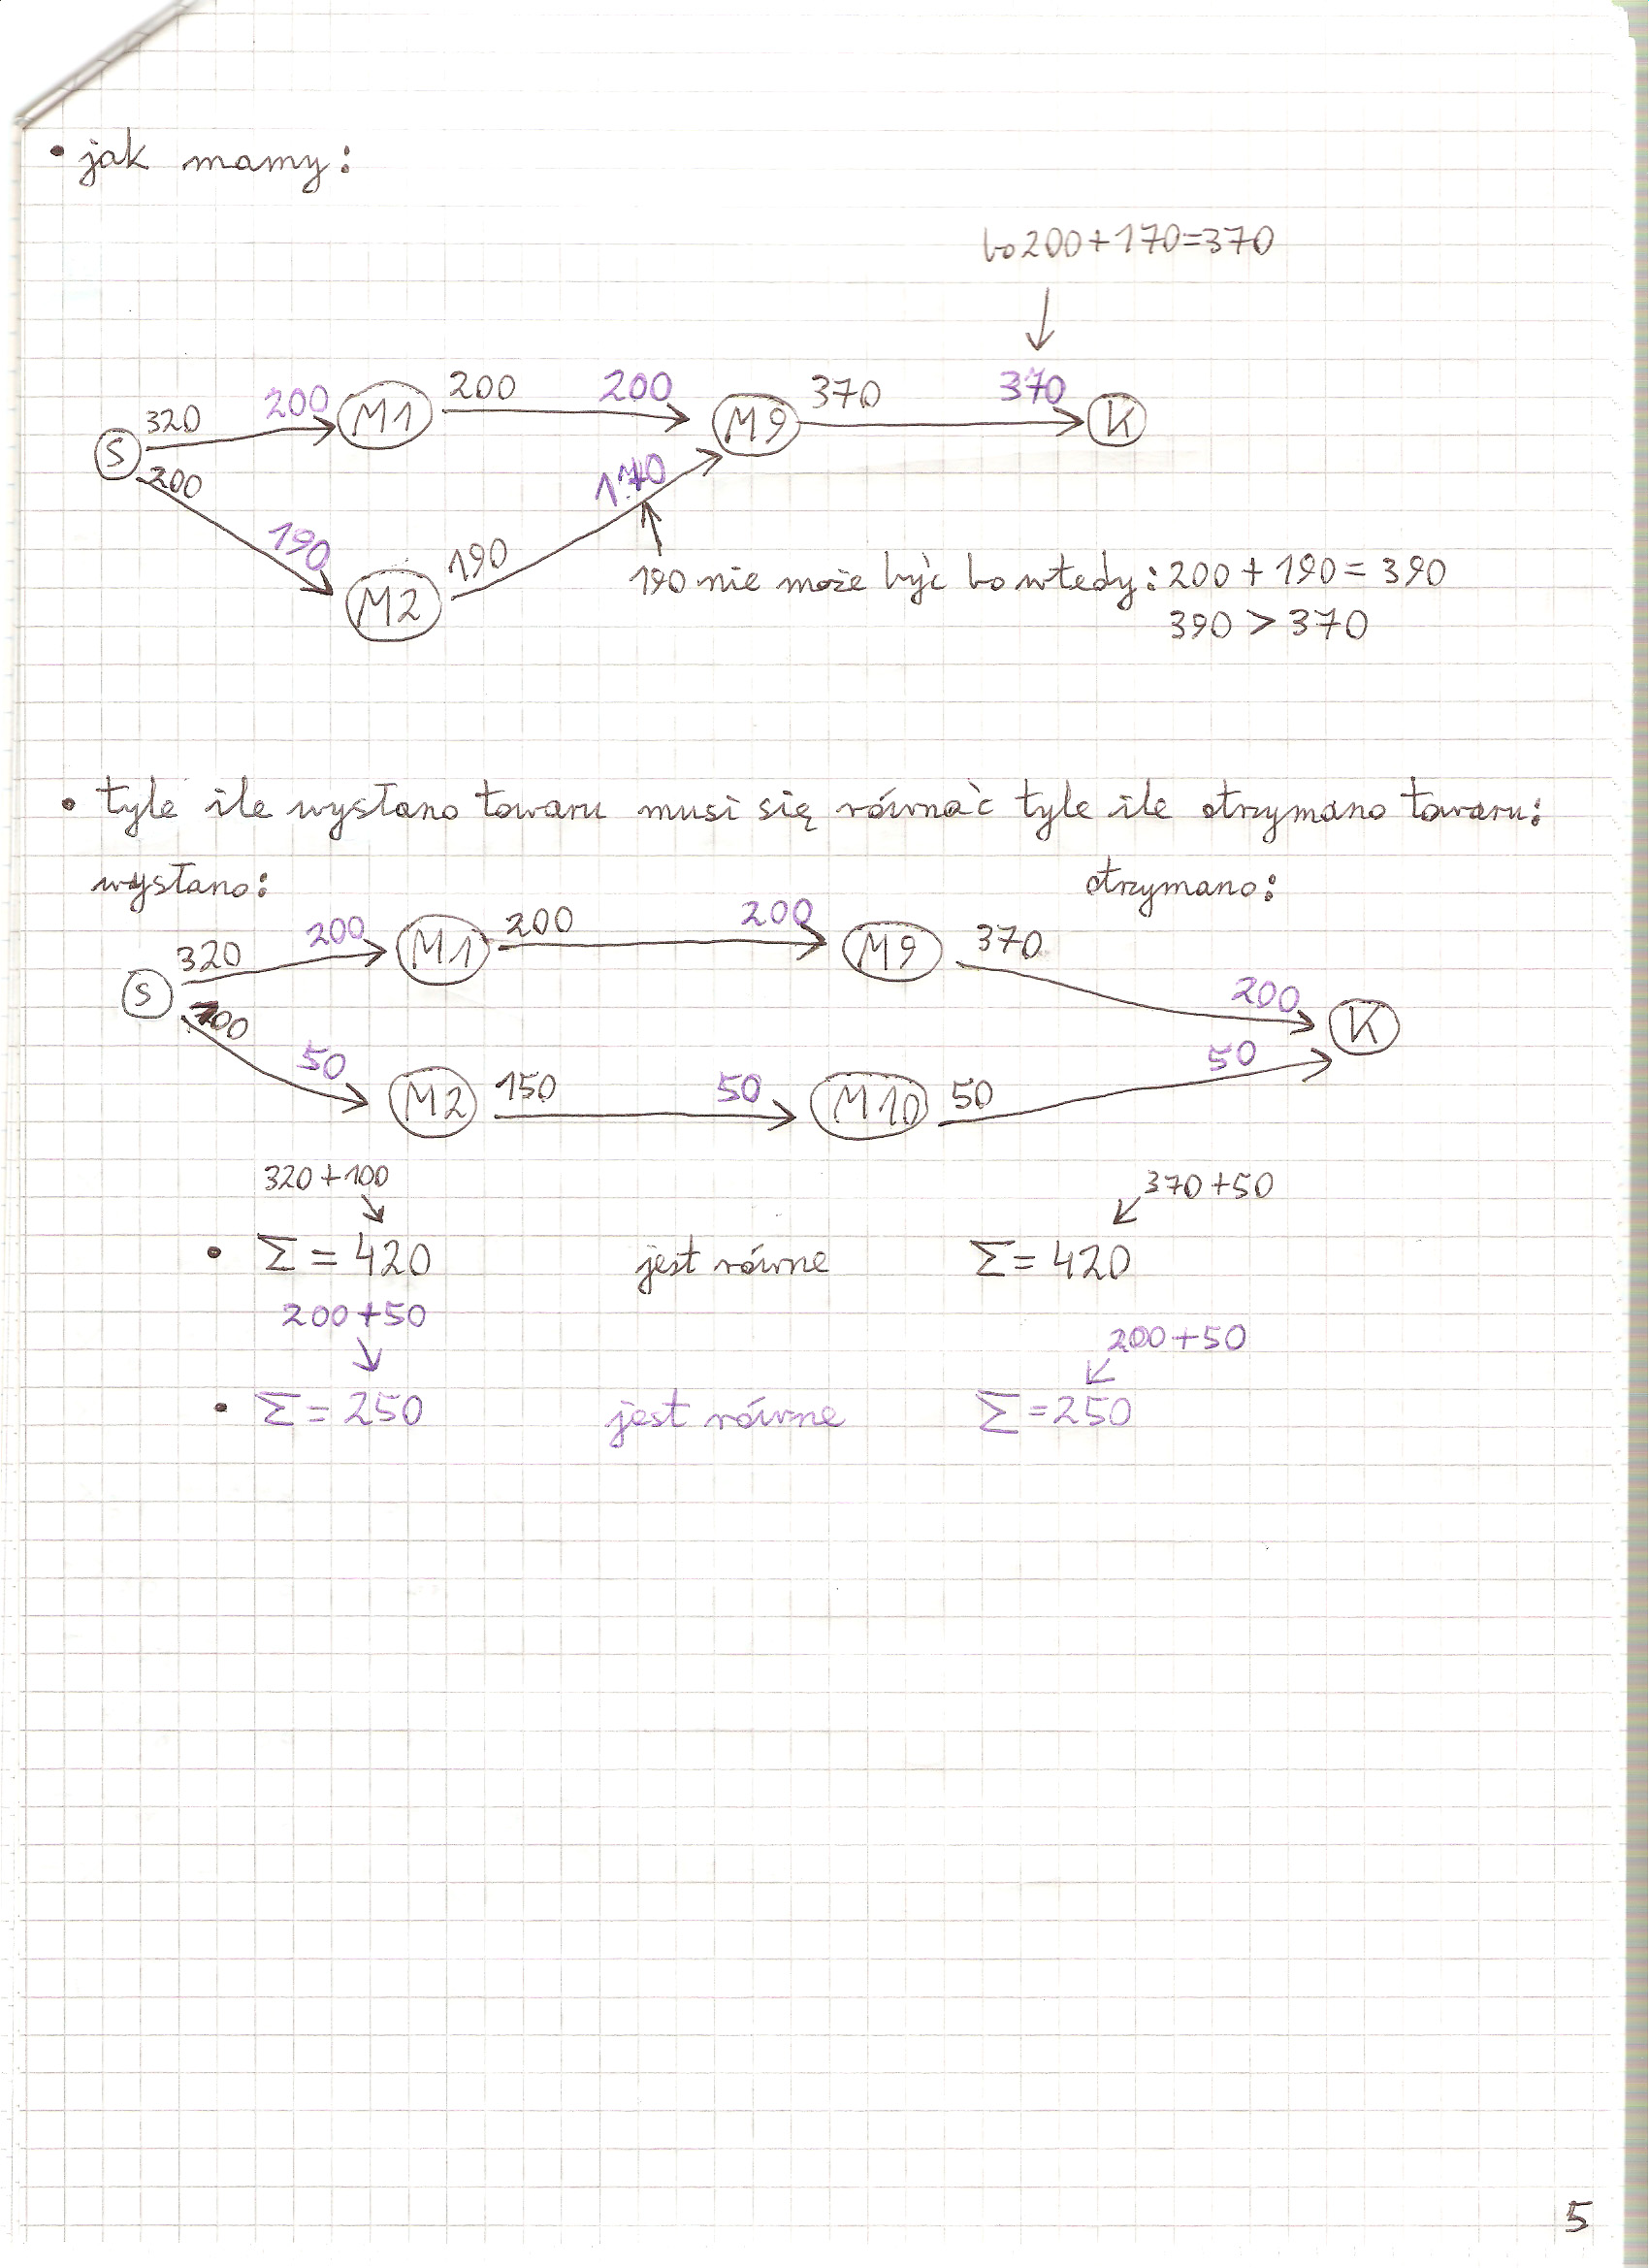 • jak mamy:
bo 200+170=370
↓
320 200 M1 200 200 M9 370 370 K
S
200 190 M2 190 170
190 nie może być bo wtedy: 200 + 190 = 390
390 > 370
• tyle ile wysłano towaru musi się równać tyle ile otrzymano towaru:
wysłano: otrzymano:
320 200 M1 200 200 M9 370 200
S K
100 50 M2 150 50 M10 50 50
320+100 370+50
• Σ = 420 jest równe Σ = 420
200+50 200+50
• Σ = 250 jest równe Σ = 250
5